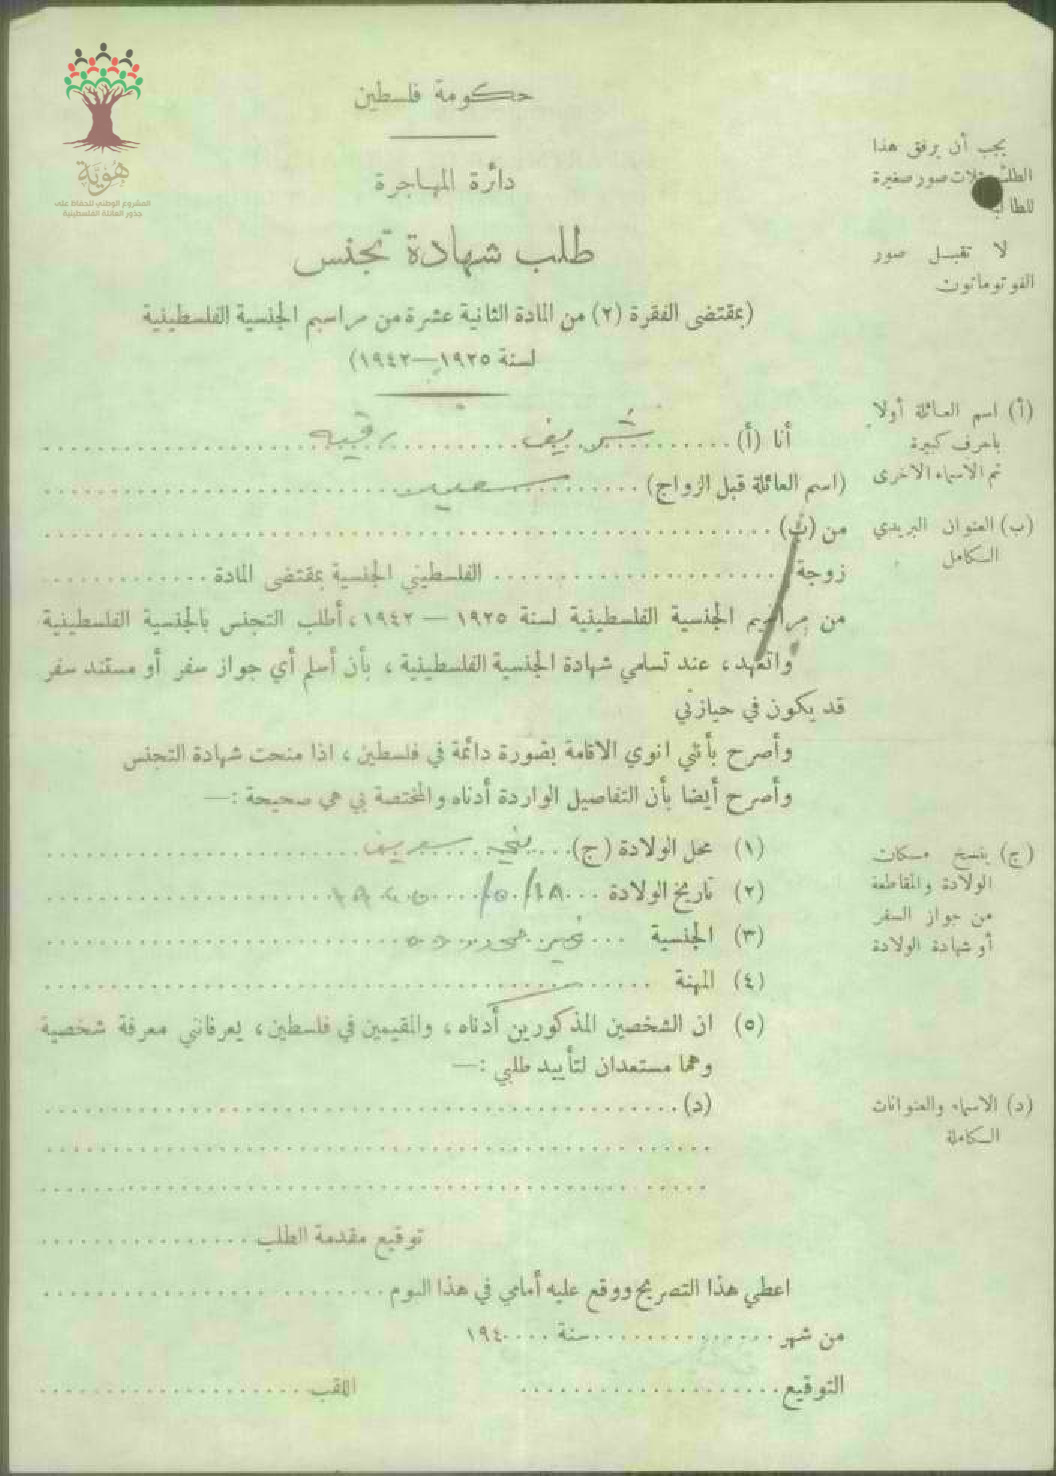 هُوِيَّة
المشروع الوطني للحفاظ على
جذور العائلة الفلسطينية
حكومة فلسطين
دائرة المهاجرة
طلب شهادة تجنس
(بمقتضى الفقرة (٢) من المادة الثانية عشرة من مراسيم الجنسية الفلسطينية
لسنة ١٩٢٥—١٩٤٢)
يجب أن يرفق هذا
الطلب ثلاث صور صغيرة
للطالب
لا تقبل صور
الفوتوماتون
أنا (أ) شريف رقيه
(اسم العائلة قبل الزواج) سعيد
(أ) اسم العائلة أولا
باحرف كبيرة
ثم الاسماء الاخرى
من (ب)
(ب) العنوان البريدي
الكامل
زوجة الفلسطيني الجنسية بمقتضى المادة
من مراسيم الجنسية الفلسطينية لسنة ١٩٢٥ — ١٩٤٢، أطلب التجنس بالجنسية الفلسطينية
واتعهد، عند تسلمي شهادة الجنسية الفلسطينية، بأن أسلم أي جواز سفر أو مستند سفر
قد يكون في حيازتي
وأصرح بأنني انوي الاقامة بصورة دائمة في فلسطين، اذا منحت شهادة التجنس
وأصرح أيضا بأن التفاصيل الواردة أدناه والمختصة بي هي صحيحة :—
(١) محل الولادة (ج)
(٢) تاريخ الولادة
(٣) الجنسية
(٤) المهنة
(ج) ينسخ مكان
الولادة والمقاطعة
من جواز السفر
أو شهادة الولادة
(٥) ان الشخصين المذكورين أدناه، والمقيمين في فلسطين، يعرفانني معرفة شخصية
وهما مستعدان لتأييد طلبي :—
(د)
(د) الاسماء والعنوانات
الكاملة
توقيع مقدمة الطلب
اعطي هذا التصريح ووقع عليه أمامي في هذا اليوم
من شهر سنة ١٩٤٠
التوقيع اللقب